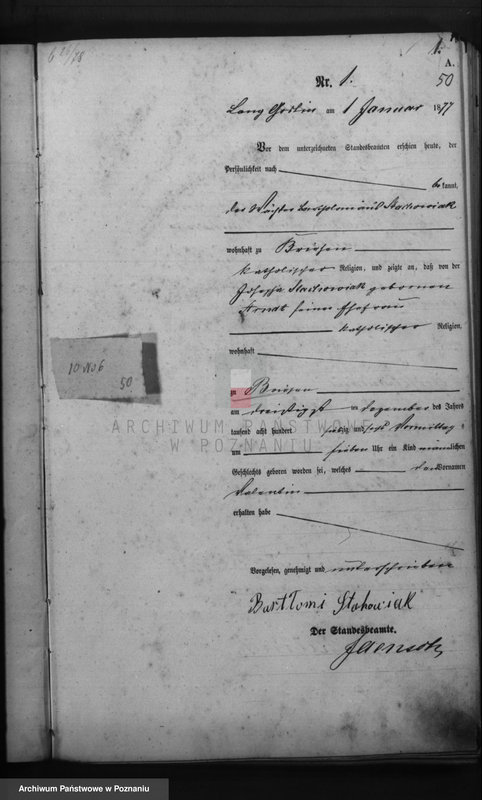 6 26/78
1.
A.
50
Nr. 1.
Lang Goslin am 1 Januar 1877
Vor dem unterzeichneten Standesbeamten erschien heute, der
Persönlichkeit nach be kannt,
der Bartholomäus Stachowiak
wohnhaft zu Briesen
katholischer Religion, und zeigte an, daß von der
Josepha Stachowiak geborenen
Arndt seiner Ehefrau
katholischer Religion,
wohnhaft
zu Briesen
am dreißigst en Dezember des Jahres
tausend acht hundert siebzig und sechs Vormittag s
um sieben Uhr ein Kind männlichen
Geschlechts geboren worden sei, welches den Vornamen
Valentin
erhalten habe
Vorgelesen, genehmigt und unterschrieben
Bartłomi Stohowiak
Der Standesbeamte.
Jaensch
50
ARCHIWUM PAŃSTWOWE
W POZNANIU
Archiwum Państwowe w Poznaniu